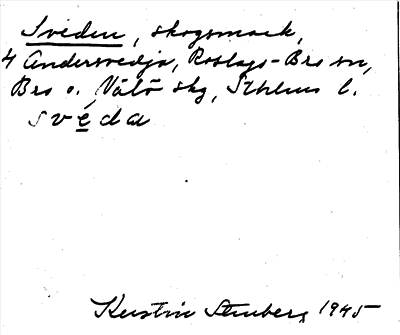 Sveden, skogsmark,
4 Andersvedja, Roslags-Bro sn,
Bro o. Vätö skg, Sthlms l.
svẹda
Kerstin Stenberg 1945